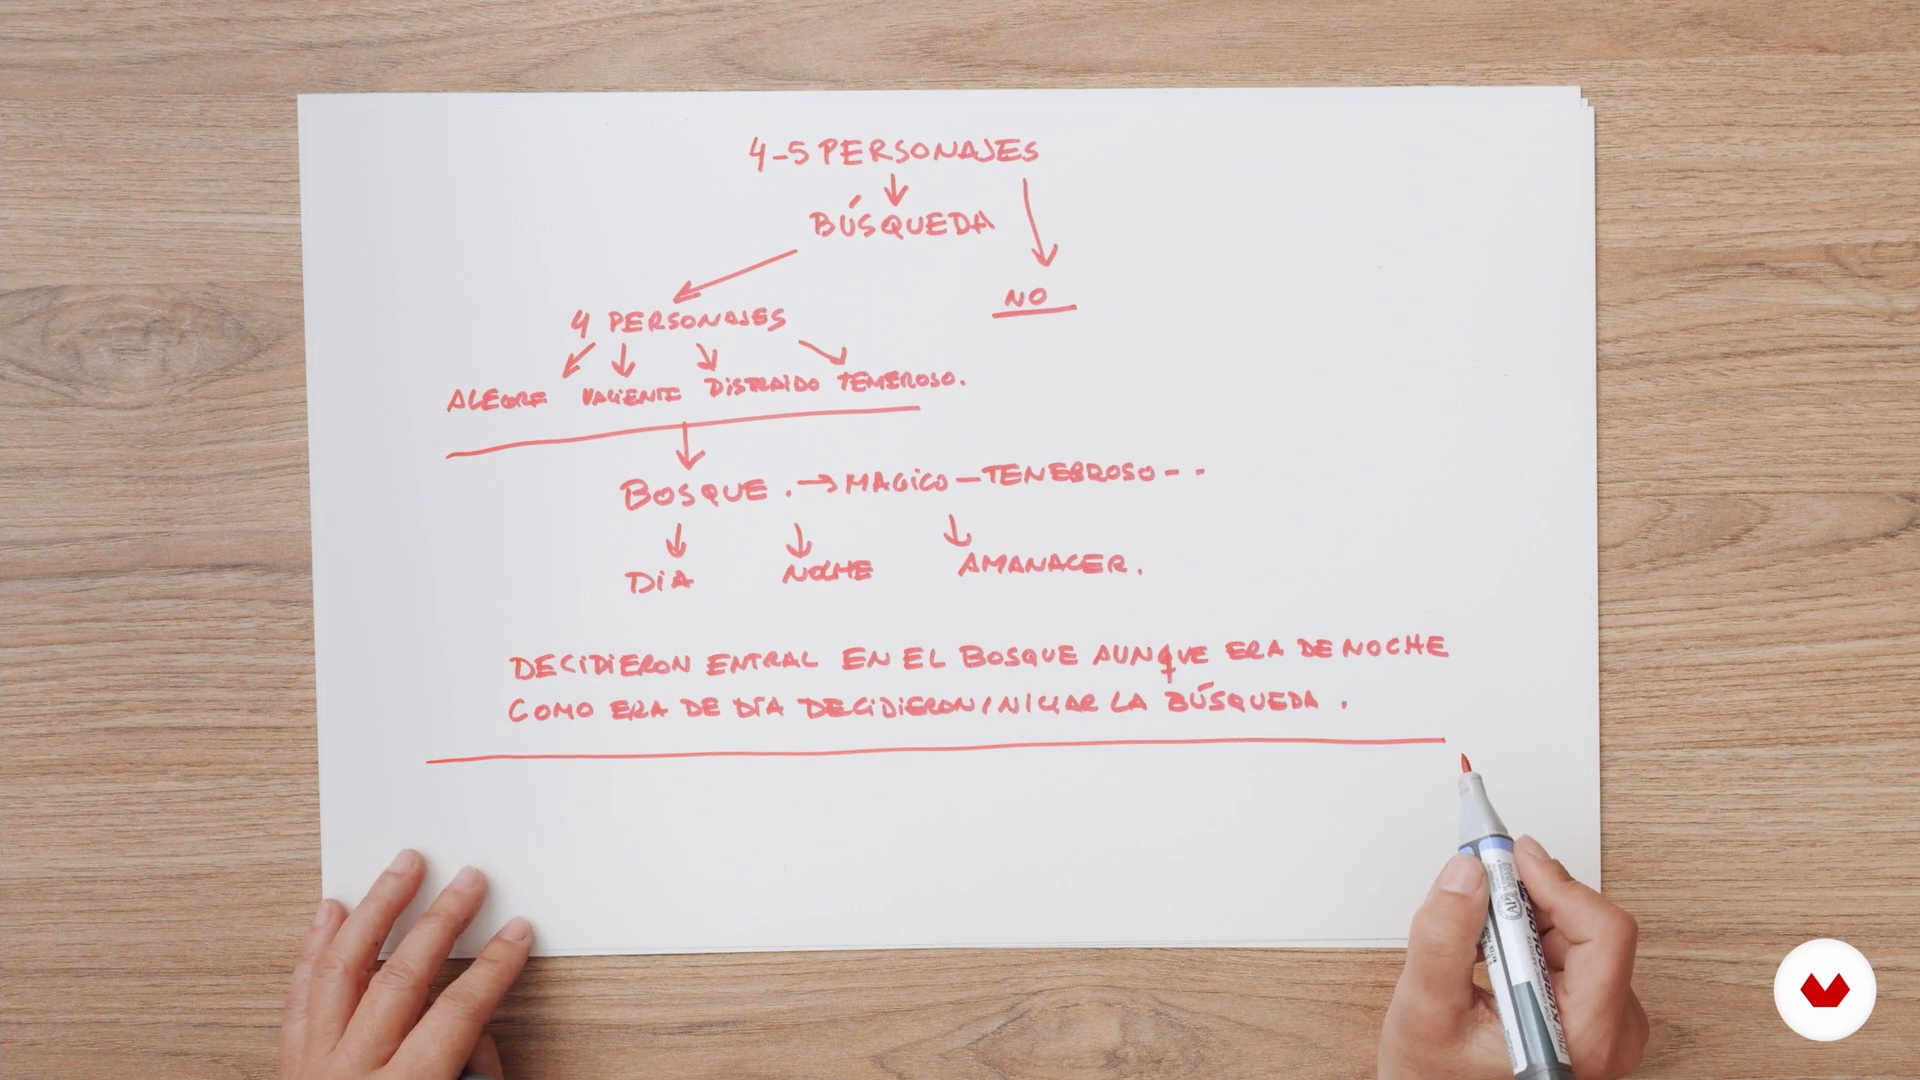 4-5 PERSONAJES
BÚSQUEDA
NO
4 PERSONAJES
ALEGRE VALIENTE DISTRAIDO TEMEROSO.
BOSQUE . → MAGICO - TENEBROSO - -
DIA NOCHE AMANACER.
DECIDIERON ENTRAL EN EL BOSQUE AUNQUE ERA DE NOCHE
COMO ERA DE DÍA DECIDIERON INICIAR LA BÚSQUEDA .